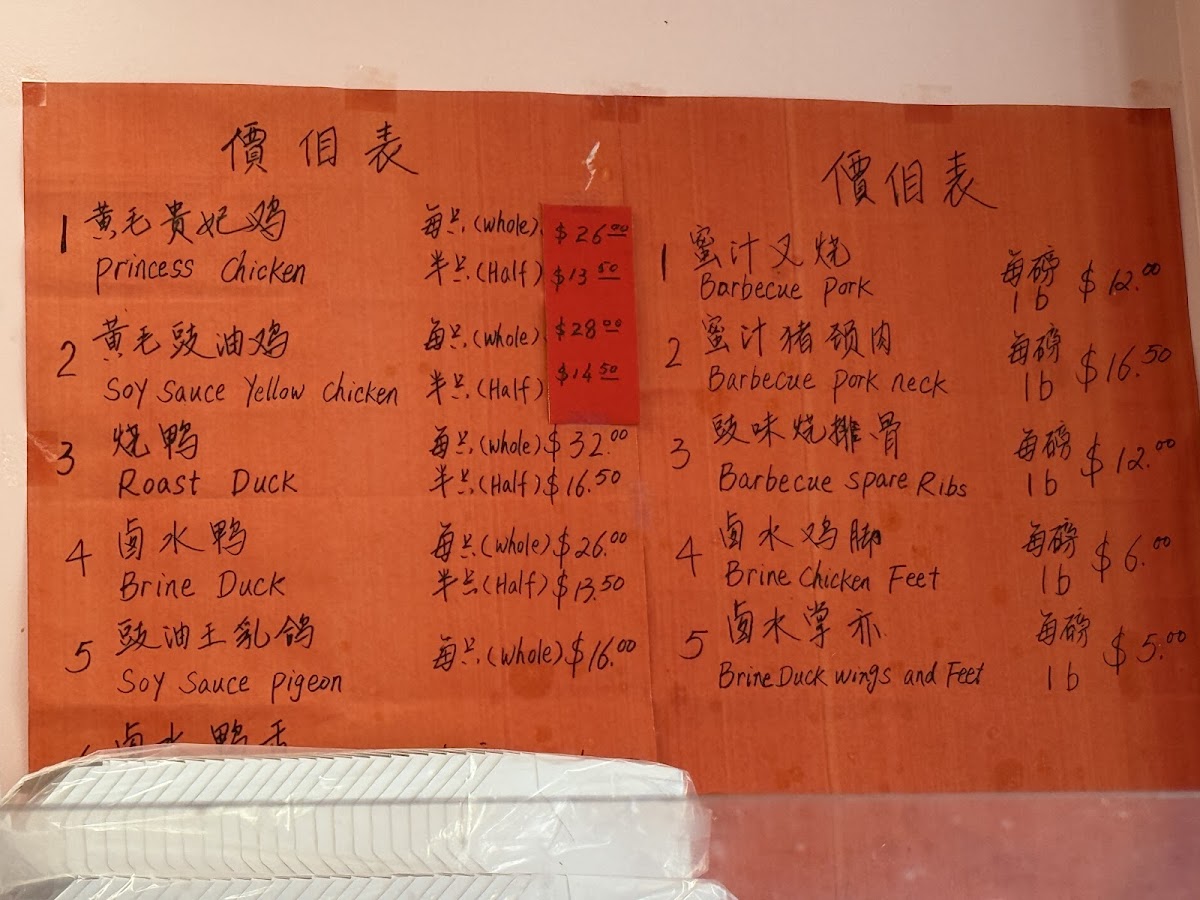 價佀表
1 黄毛贵妃鸡 每只(whole) $26.00
princess Chicken 半只(Half) $13.50
2 黄毛豉油鸡 每只(whole) $28.00
Soy Sauce Yellow Chicken 半只(Half) $14.50
3 烧鸭 每只(whole) $32.00
Roast Duck 半只(Half) $16.50
4 卤水鸭 每只(whole) $26.00
Brine Duck 半只(Half) $13.50
5 豉油王乳鸽 每只(whole) $16.00
Soy Sauce pigeon
卤水鸭舌
價佀表
1 蜜汁叉烧 每磅 $12.00
Barbecue pork 1b
2 蜜汁猪颈肉 每磅 $16.50
Barbecue pork neck 1b
3 豉味烧排骨 每磅 $12.00
Barbecue Spare Ribs 1b
4 卤水鸡脚 每磅 $6.00
Brine Chicken Feet 1b
5 卤水掌亦 每磅 $5.00
Brine Duck wings and Feet 1b